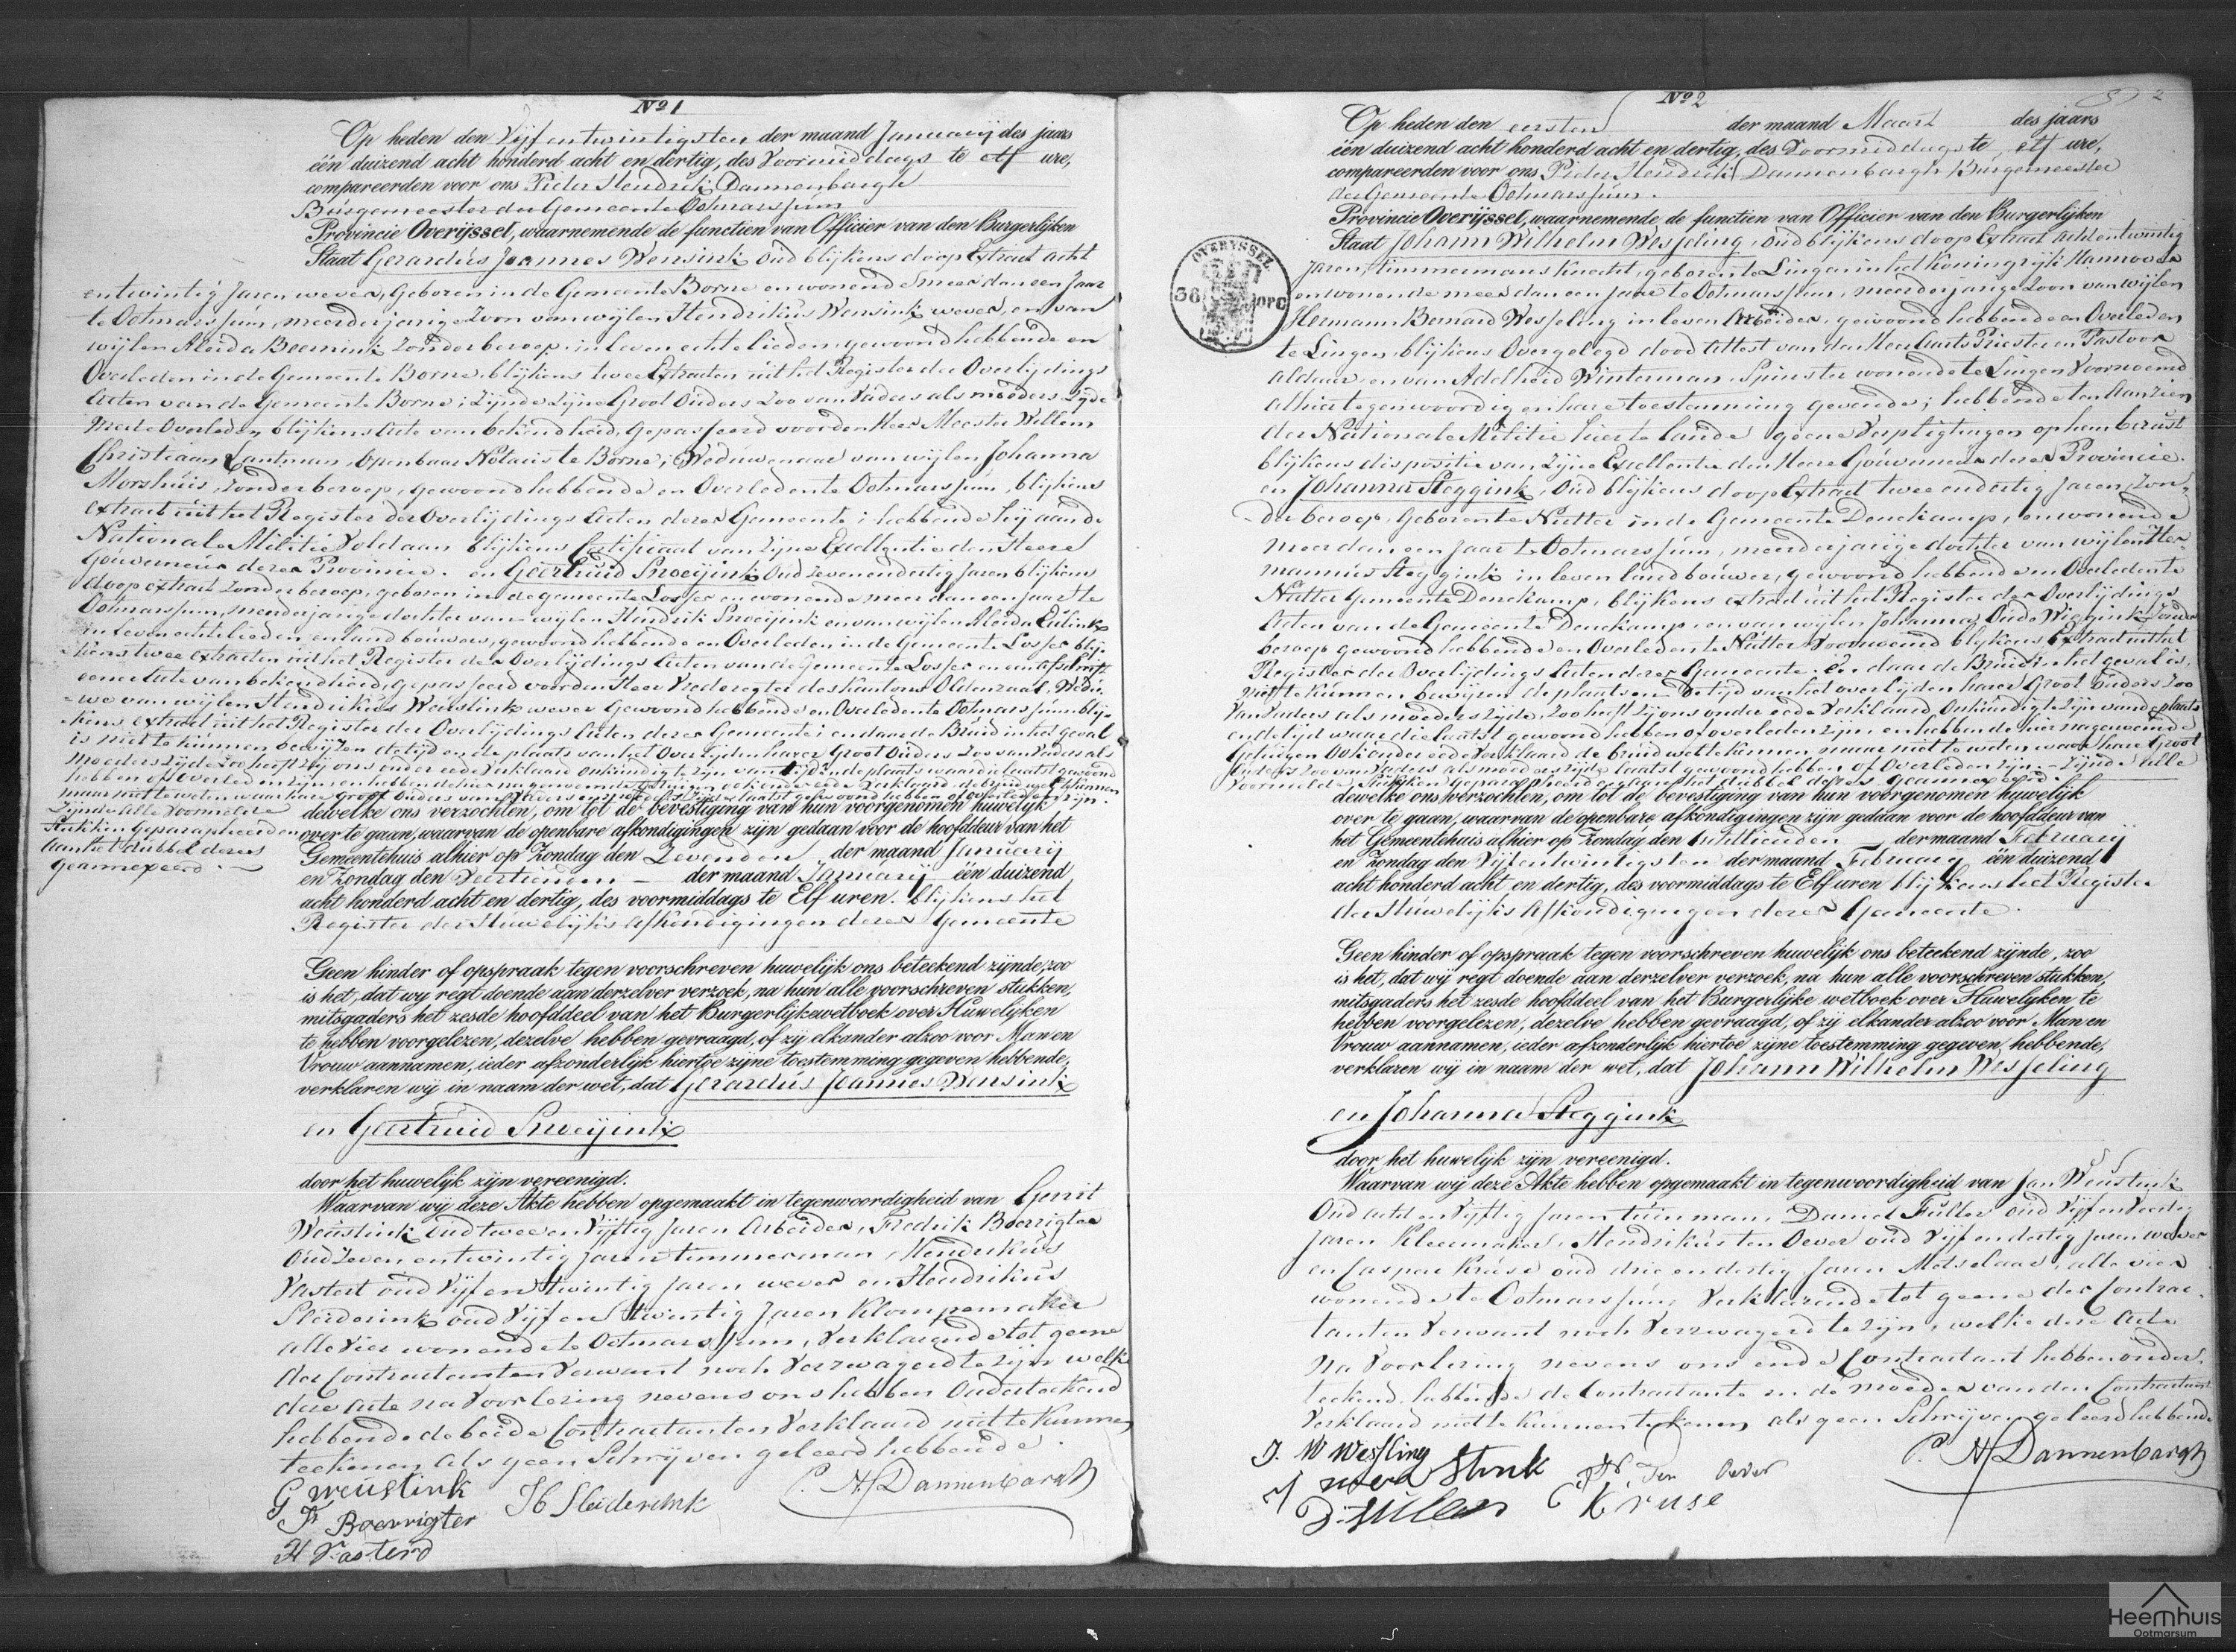 Nº 1
Op heden den Vijfentwintigsten der maand Januarij des jaars
één duizend acht honderd acht en dertig, des Voormiddags te elf ure,
compareerden voor ons Pieter Hendrik Dannenbargh
Burgemeester der Gemeente Ootmarssum
Provincie Overijssel, waarnemende de functien van Officier van den Burgerlijken
Staat Gerardus Joannes Wensink oud blijkens doop Extract acht
entwintig Jaren wever, Geboren in de Gemeente Borne en wonende meer dan een Jaar
te Ootmarssum, meerderjarige Zoon van wijlen Hendrikus Wensink wever, en van
wijlen Aleida Beernink Zonder beroep in leven echtelieden, gewoond hebbende en
Overleden in de Gemeente Borne, blijkens twee Extracten uit het Register der Overlijdings
Acten van de Gemeente Borne; Zijnde Zijne Groot Ouders Zoo van Vaders als moeders Zijde
mede Overleden blijkens Acte van bekendheid, Gepasseerd voor den Heer Meester Willem
Christiaan Lantman, Openbaar Notaris te Borne; Weduwenaar van wijlen Johanna
Morshuis, Zonder beroep, gewoond hebbende en Overleden te Ootmarssum, blijkens
extract uit het Register der Overlijdings Acten dezer Gemeente; hebbende hij aan de
Nationale Militie Voldaan blijkens Certificaat van Zijne Excellentie den Heere
Gouverneur dezer Provincie. en Geertruid Snoeijink Oud Zevenendertig Jaren blijkens
doop extract Zonder beroep, geboren in de gemeente Losser en wonende meer dan een Jaar te
Ootmarssum, meerderjarige dochter van wijlen Hendrik Snoeijink en van wijlen Aleida Eulink
in leven echtelieden en landbouwers, gewoond hebbende en Overleden in de Gemeente Losser blij-
kens twee extracten uit het Register der Overlijdings Acten van de Gemeente Losser en een afschrift
eener Acte van bekendheid, Gepasseerd voor den Heer Vrederegter des Kantons Oldenzaal. Wedu-
-we van wijlen Hendrikus Weustink wever gewoond hebbende en Overleden te Ootmarssum blij-
kens extract uit het Register der Overlijdings Acten dezer Gemeente; en daar de Bruid in het geval
is niet te kunnen bewijzen de tijd en de plaats van het Overlijden harer Groot Ouders Zoo van Vaders als
moeders Zijde Zoo heeft Zij ons onder eede Verklaard onkundig te Zijn van tijd en de plaats waar die laatst gewoond
hebben of Overleden Zijn, en hebben de hier na genoemde Getuigen ook onder eede Verklaard de bruid wel te kunnen
maar niet te weten waar hare Groot Ouders van Vaders als moeders Zijde laatst gewoond hebben of overleden Zijn.
Zijnde alle Voormelde
Stukken Geparapheerd en
aan het dubbel dezes
geannexeerd.
dewelke ons verzochten, om tot de bevestiging van hun voorgenomen huwelijk
over te gaan, waarvan de openbare afkondigingen zijn gedaan voor de hoofddeur van het
Gemeentehuis alhier op Zondag den Zevenden der maand Januarij
en Zondag den Veertienden der maand Januarij één duizend
acht honderd acht en dertig, des voormiddags te Elf uren. blijkens het
Register der Huwelijks Afkondigingen dezer Gemeente
Geen hinder of opspraak tegen voorschreven huwelijk ons beteekend zijnde, zoo
is het, dat wy regt doende aan derzelver verzoek, na hun alle voorschreven stukken,
mitsgaders het zesde hoofddeel van het Burgerlijke wetboek over Huwelijken
te hebben voorgelezen, dezelve hebben gevraagd, of zij elkander alzoo voor Man en
Vrouw aannamen, ieder afzonderlijk hiertoe zijne toestemming gegeven hebbende,
verklaren wij in naam der wet, dat Gerardus Joannes Wensink
en Geertruid Snoeijink
door het huwelijk zijn vereenigd.
Waarvan wij deze Akte hebben opgemaakt in tegenwoordigheid van Gerrit
Weustink oud twee en Vijftig Jaren Arbeider, Fredrik Boerrigter
Oud Zeven entwintig Jaren timmerman, Hendrikus
Vastert oud Vijf en twintig Jaren wever en Hendrikus
Sleiderink oud Vijf en twintig Jaren Klompemaker
alle Vier wonende te Ootmarssum, Verklarende tot geene
der Contractanten Verwant noch Verzwagerd te Zijn welke
deze Acte na Voorlezing nevens ons hebben Onderteekend
hebbende de beide Contractanten Verklaard niet te Kunnen
teekenen als geen Schrijven geleerd hebbende.
G weustink
F Boerrigter
H Vasterd
H Sleiderink
P. H. Dannenbargh
Nº 2
Op heden den eersten der maand Maart des jaars
één duizend acht honderd acht en dertig, des Voormiddags te elf ure,
compareerden voor ons Pieter Hendrik Dannenbargh Burgemeester
der Gemeente Ootmarssum.
Provincie Overijssel, waarnemende de functien van Officier van den Burgerlijken
Staat Johann Wilhelm Wesseling, oud blijkens doop Extract acht entwintig
OVERYSSEL
36 OPC
Jaren, timmermans Knecht, geboren te Lingen in het Koningrijk Hannover
en wonende meer dan een Jaar te Ootmarssum, meerderjarige Zoon van wijlen
Hermann Bernard Wesseling in leven Arbeider, gewoond hebbende en Overleden
te Lingen, blijkens Overgelegd dood Attest van den Heer Aarts Priester en Pastoor
aldaar en van Adelheid Winterman, Spinster wonende te Lingen Voornoemd
alhier tegenwoordig en hare toestemming gevende; hebbende ten Aanzien
der Nationale Militie hier te lande geene Verpligtingen op hem berust
blijkens dispositie van Zijne Excellentie den Heere Gouverneur dezer Provincie.
en Johanna Steggink, Oud blijkens doop Extract twee endertig Jaren, Zon-
der beroep, Geboren te Nutter in de Gemeente Denekamp, en wonende
meer dan een Jaar te Ootmarssum, meerderjarige dochter van wijlen Her-
mannus Steggink in leven landbouwer, gewoond hebbende en Overleden te
Nutter Gemeente Denekamp, blijkens extract uit het Register der Overlijdings
Acten van de Gemeente Denekamp, en van wijlen Johanna Oude Wiggink Zonder
beroep gewoond hebbende en Overleden te Nutter Voornoemd blijkens Extract uit het
Register der Overlijdings Acten dezer Gemeente. En daar de Bruid in het geval is,
niet te kunnen bewijzen de plaats en de tijd van het overlijden harer Groot Ouders Zoo
van Vaders als moeders Zijde, Zoo heeft Zij ons onder eede Verklaard, Onkundig te Zijn van de plaats
en de tijd waar die laatst gewoond hebben of overleden Zijn, en hebben de hier nagenoemde
Getuigen Ook onder eede Verklaard de bruid wel te kennen, maar niet te weten waar hare Groot
Ouders Zoo van Vaders als moeders Zijde laatst gewoond hebben of Overleden Zijn. - Zijnde alle
Voormelde Stukken Geparapheerd en aan het dubbel dezes geannexeerd.
dewelke ons verzochten, om tot de bevestiging van hun voorgenomen huwelijk
over te gaan, waarvan de openbare afkondigingen zijn gedaan voor de hoofddeur van
het Gemeentehuis alhier op Zondag den Achttienden der maand Februarij
en Zondag den Vijfentwintigsten der maand Februarij één duizend
acht honderd acht en dertig, des voormiddags te Elf uren blijkens het Register
der Huwelijks Afkondigingen dezer Gemeente.
Geen hinder of opspraak tegen voorschreven huwelijk ons beteekend zijnde, zoo
is het, dat wij regt doende aan derzelver verzoek, na hun alle voorschreven stukken,
mitsgaders het zesde hoofddeel van het Burgerlijke wetboek over Huwelyken te
hebben voorgelezen, dezelve hebben gevraagd, of zij elkander alzoo voor Man en
Vrouw aannamen, ieder afzonderlijk hiertoe zijne toestemming gegeven hebbende,
verklaren wij in naam der wet, dat Johann Wilhelm Wesseling
en Johanna Steggink
door het huwelijk zijn vereenigd.
Waarvan wij deze Akte hebben opgemaakt in tegenwoordigheid van Jan Weustink
Oud acht en Vijftig Jaren tuinman, Daniel Fuller oud Vijf en Veertig
Jaren Kleermaker, Hendrikus ten Oever oud Vijf en dertig Jaren wever
en Caspar Kruse oud drie en dertig Jaren Metselaar, alle vier
wonende te Ootmarssum, Verklarende tot geene der Contrac-
tanten Verwant noch Verzwagerd te Zijn, welke deze Acte
na Voorlezing nevens ons en de Contractant hebben onder-
teekend, hebbende de Contractante en de moeder van den Contractant
Verklaard niet te kunnen teekenen als geen Schrijven geleerd hebbende
J. W Wessling
D. Fuller
H. Ten Oever
C Kruse
P. H. Dannenbargh
Heemhuis
Ootmarsum